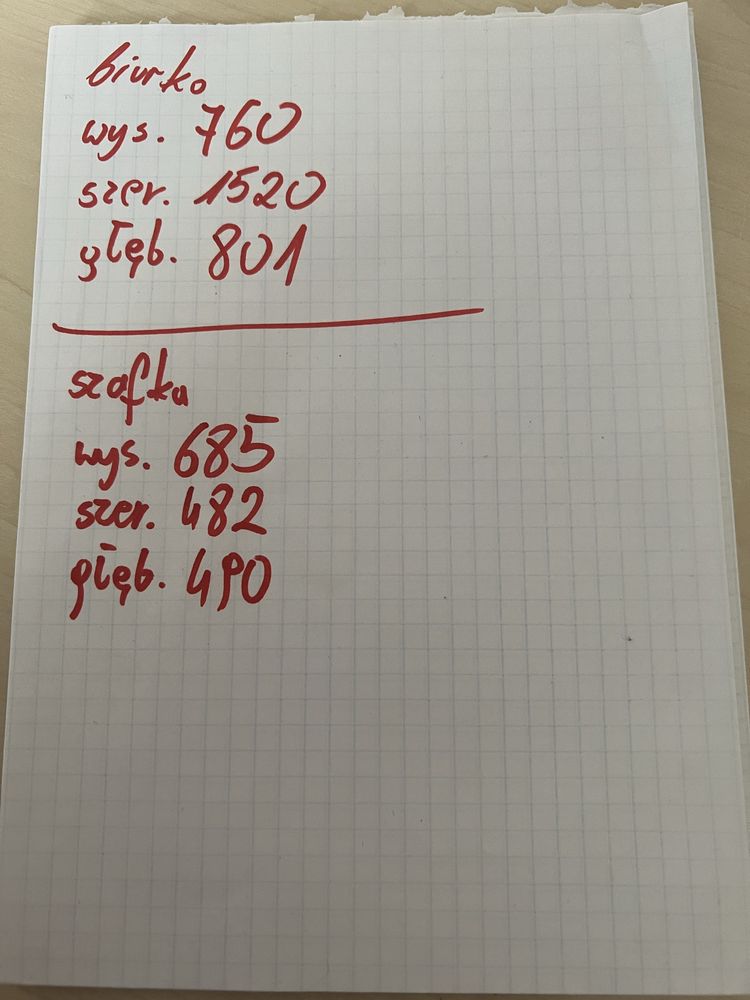 biurko
wys. 760
szer. 1520
głęb. 801
szafka
wys. 685
szer. 482
głęb. 490